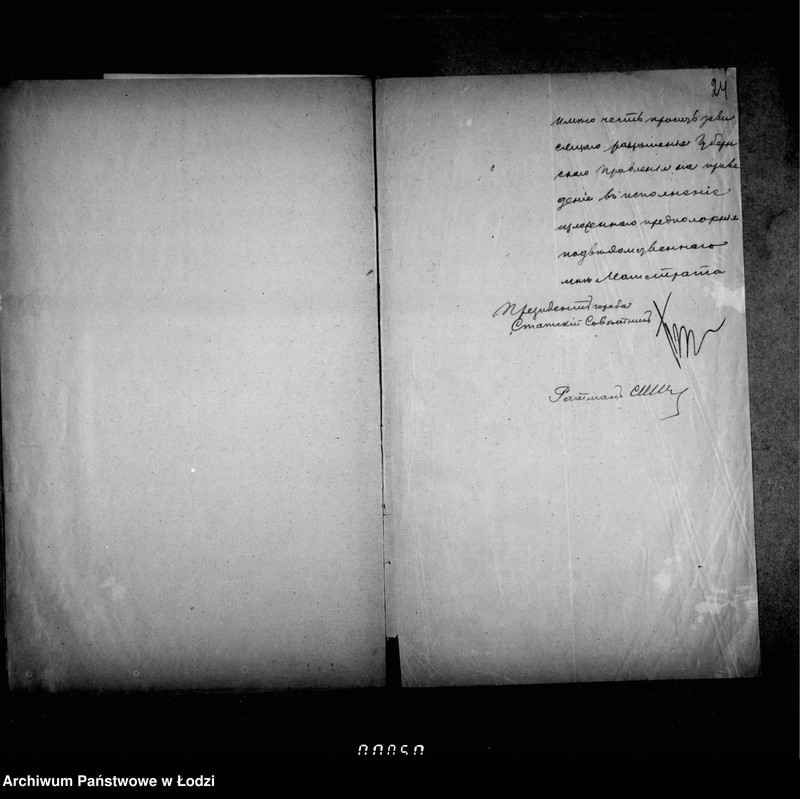 24
имѣю честь просить зави
сящаго разрѣшенія Губерн
скаго Правленія на приве
деніе въ исполненіе
изложеннаго предположенія
подвѣдомственнаго
мнѣ Магистрата
Президентъ города
Статскій Совѣтникъ
Ратманъ
00050
Archiwum Państwowe w Łodzi